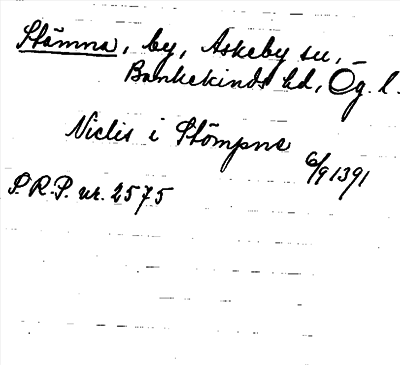 Stämna, by, Askeby sn,
Bankekinds hd, Ög. l.
Niclis i Stömpne
6/9 1391
S.R.P. nr. 2575